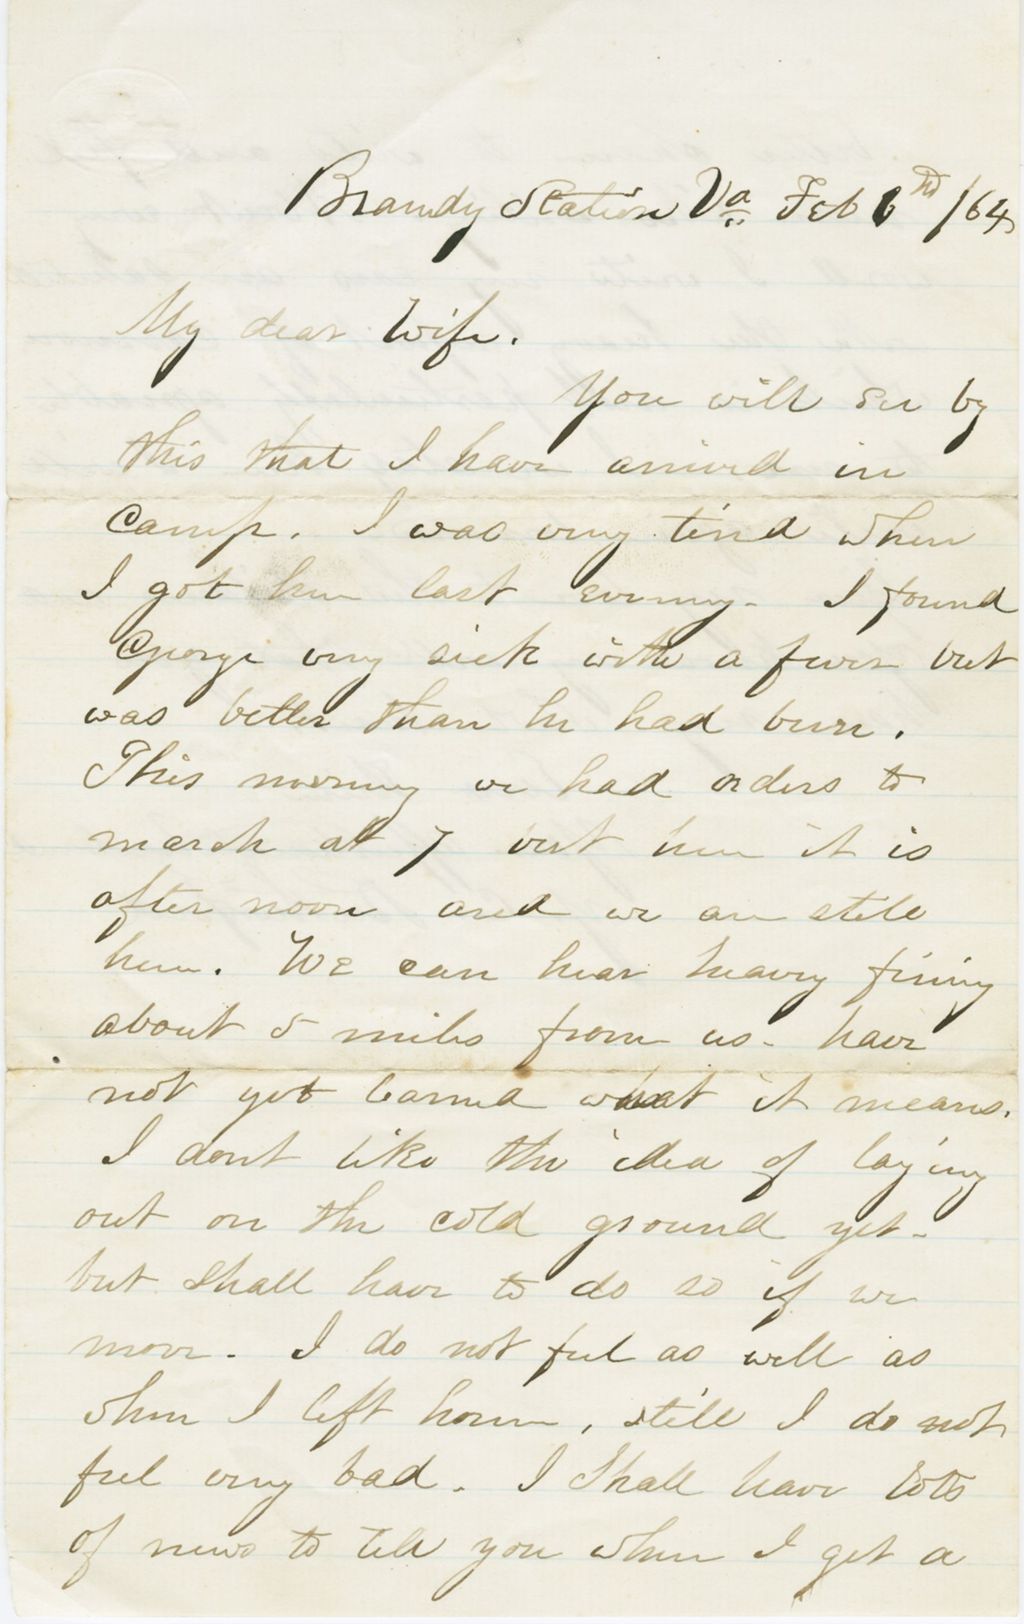 Brandy Station Va Feb 6th /64
My dear Wife.
You will see by
this that I have arrived in
Camp. I was very tired when
I got here last evening. I found
George very sick with a fever but
was better than he had been.
This morning we had orders to
march at 7 but here it is
after noon and we are still
here. We can hear heavy firing
about 5 miles from us. have
not yet learned what it means.
I dont like the idea of laying
out on the cold ground yet.
but shall have to do so if we
move. I do not feel as well as
when I left home, still I do not
feel very bad. I Shall have lots
of news to tell you when I get a